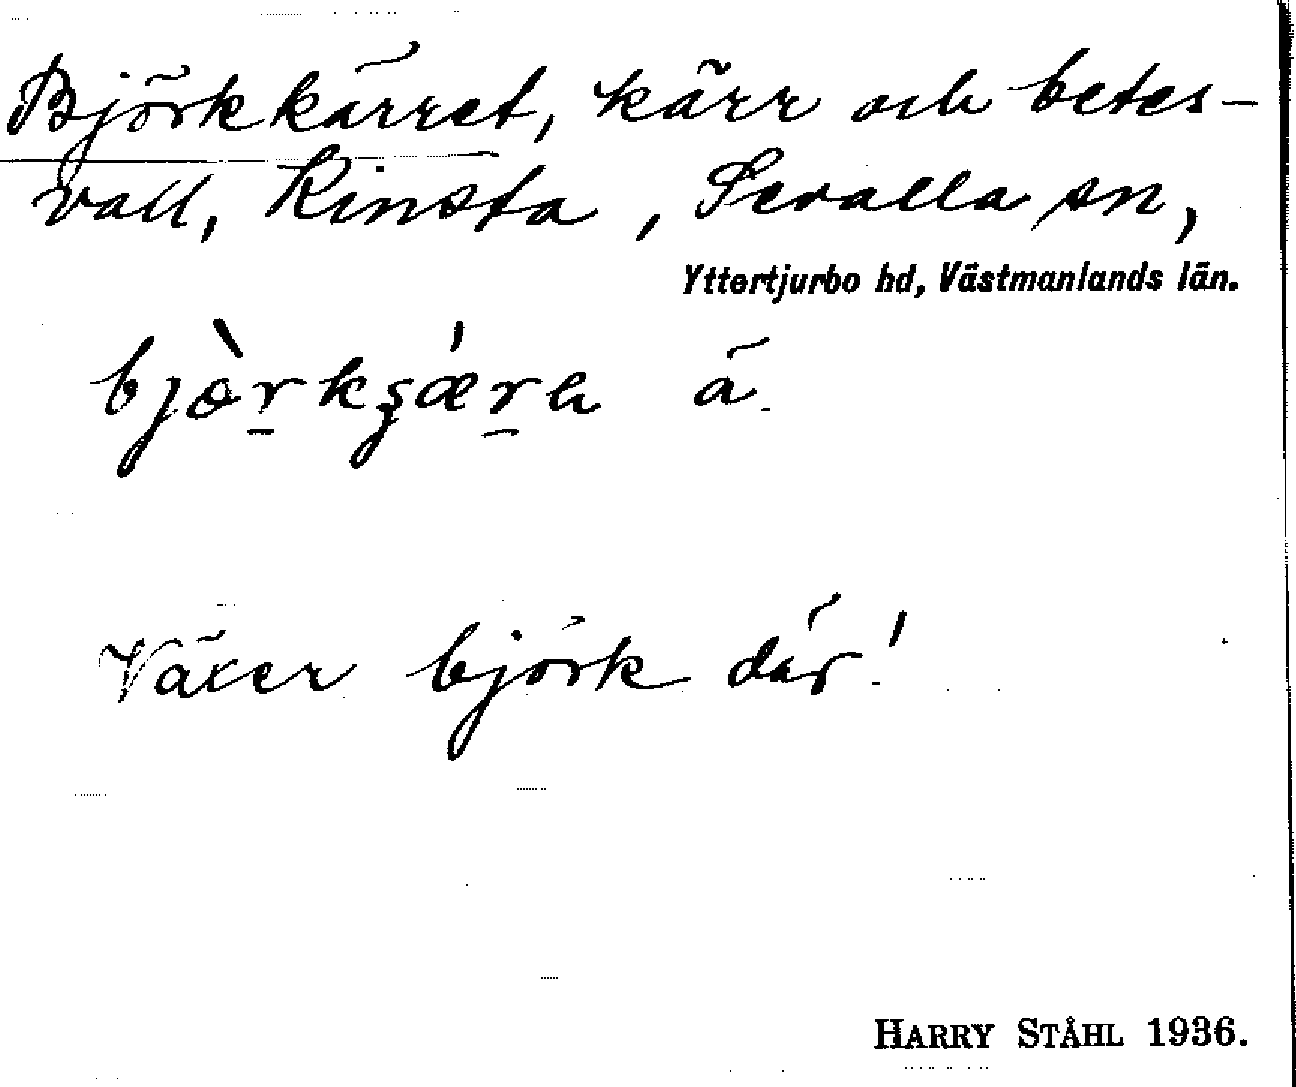 Björkkärret, kärr och betes-
vall, Kinsta, Sevalla sn,
Yttertjurbo hd, Västmanlands län.
ä
Växer björk där!
HARRY STÅHL 1936.